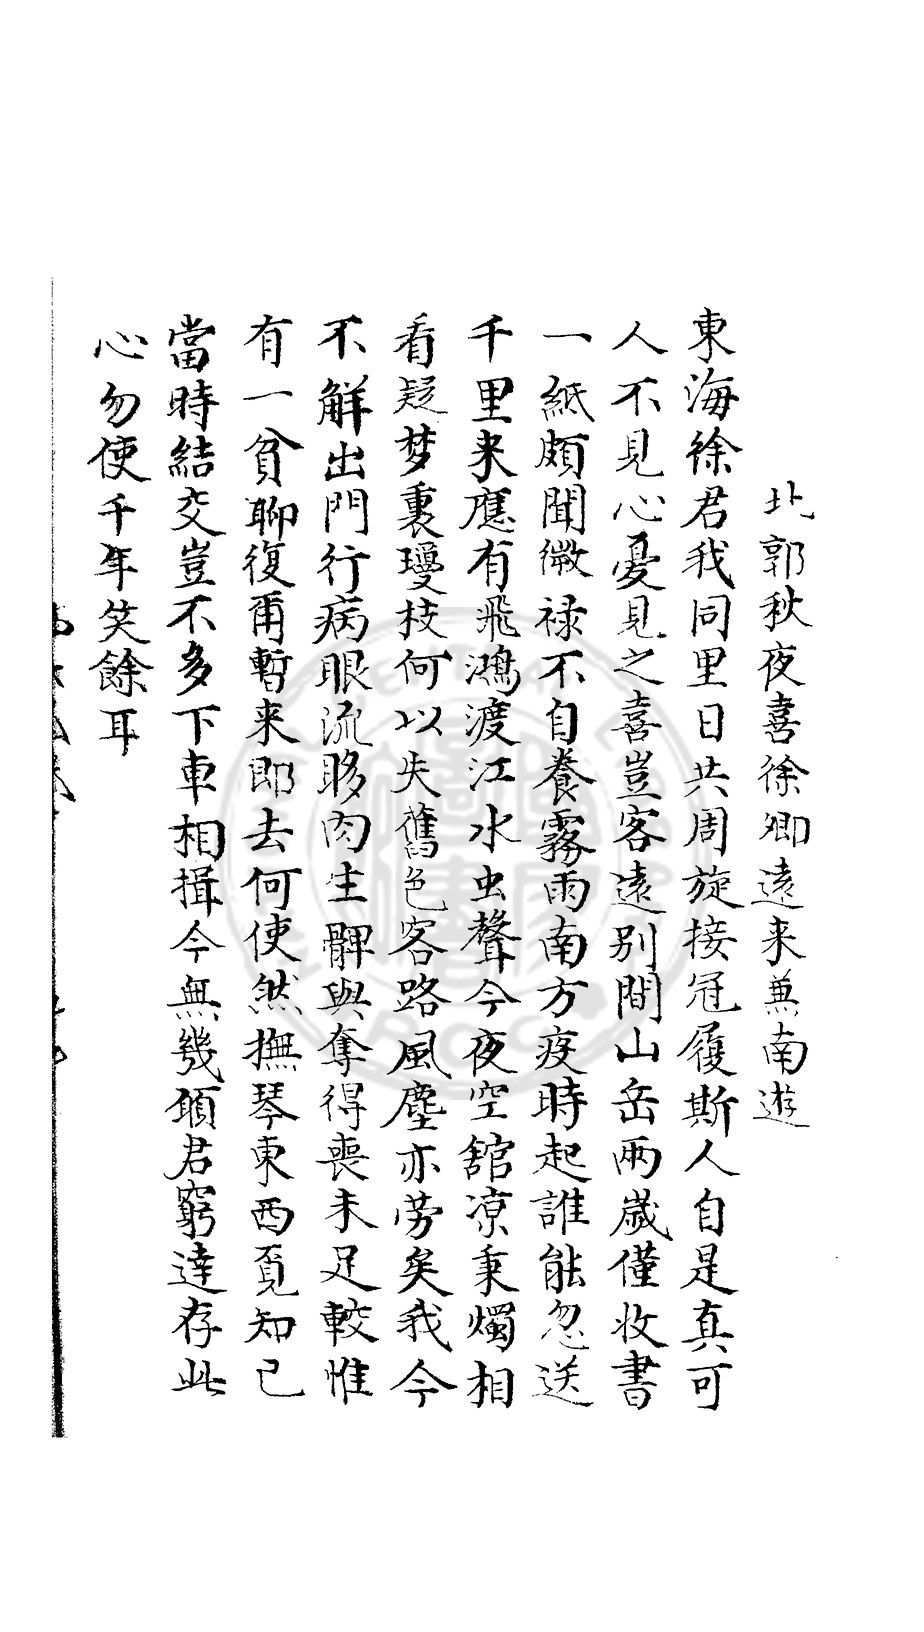 北郭秋夜喜徐卿遠来兼南遊
東海徐君我同里日共周旋接冠履斯人自是真可
人不見心憂見之喜豈客遠别間山岳兩歲僅收書
一紙頗聞微禄不自養霧雨南方疫時起誰能忽送
千里来應有飛鴻渡江水虫聲今夜空舘凉秉燭相
看疑梦裏瓊枝何以失舊色客路風塵亦劳矣我今
不解出門行病眼流眵肉生髀與奪得喪未足較惟
有一貧聊復甭暫来即去何使然撫琴東西覓知己
當時結交豈不多下車相揖今無幾頋君窮達存此
心勿使千年笑餘耳